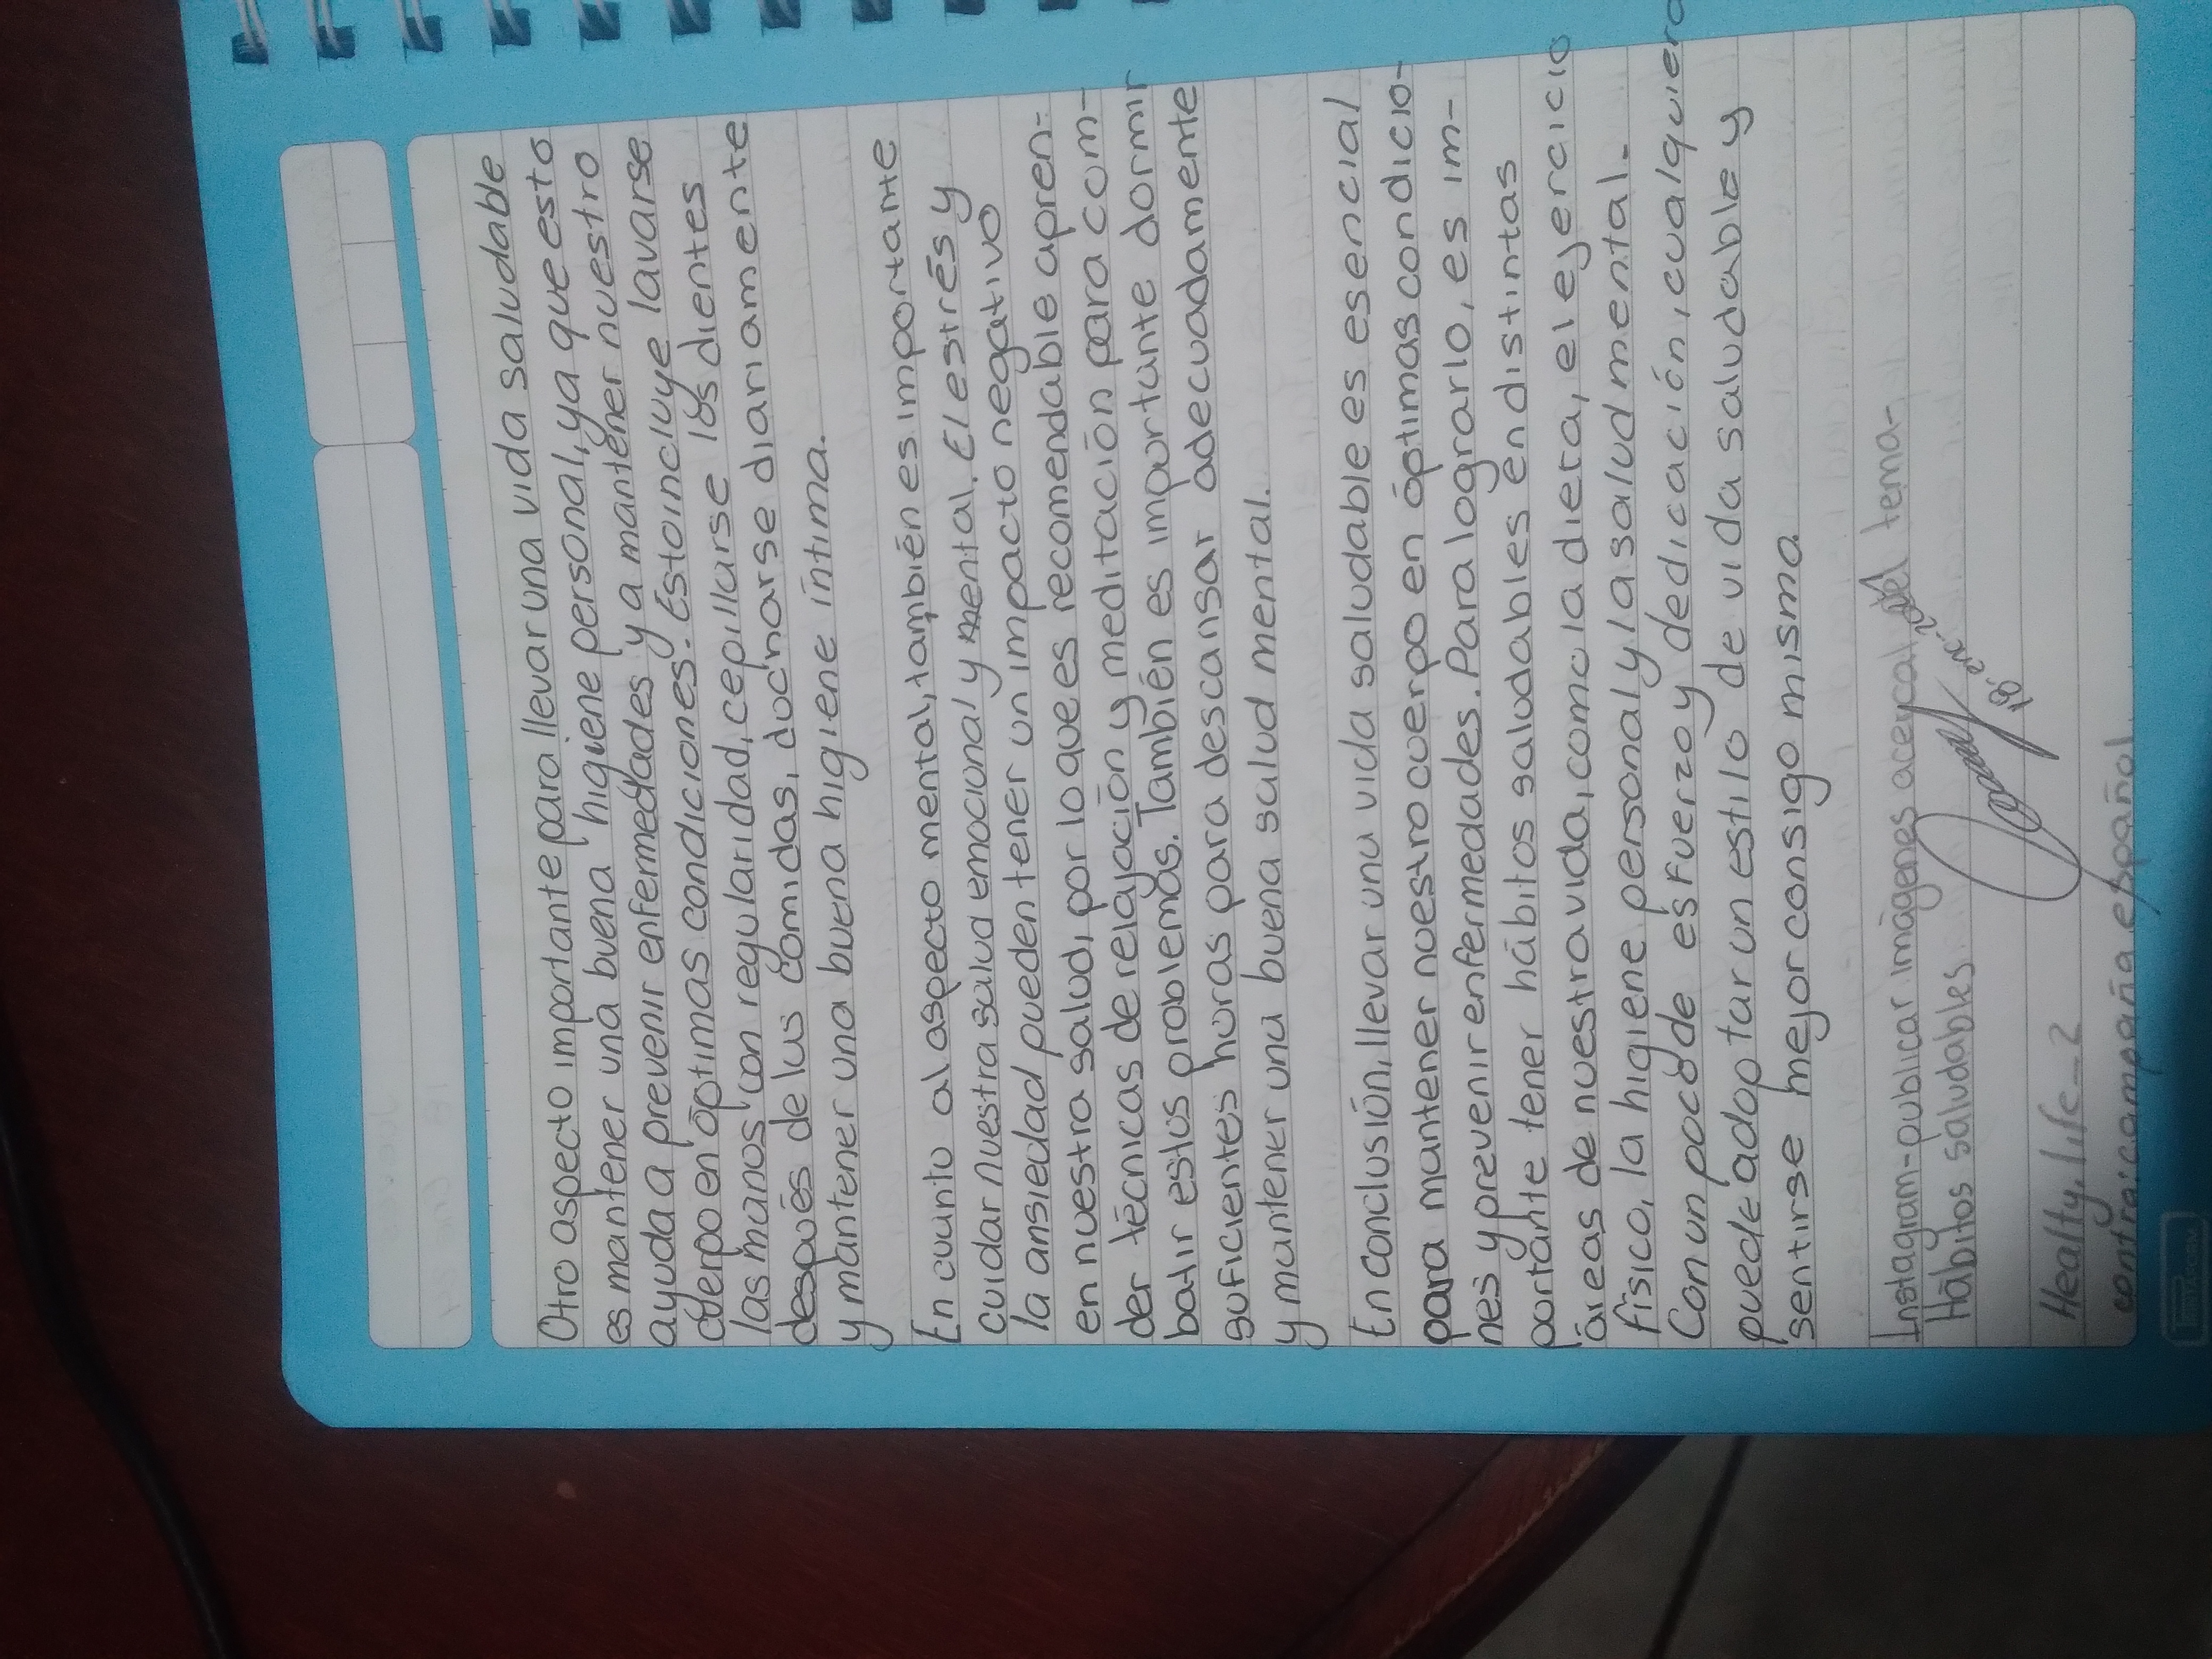 Otro aspecto importante para llevar una vida saludable
es mantener una buena higiene personal, ya que esto
ayuda a prevenir enfermedades y a mantener nuestro
cuerpo en óptimas condiciones. Esto incluye lavarse
las manos con regularidad, cepillarse los dientes
después de las comidas, ducharse diariamente
y mantener una buena higiene íntima.
En cuanto al aspecto mental, también es importante
cuidar nuestra salud emocional y mental. El estrés y
la ansiedad pueden tener un impacto negativo
en nuestra salud, por lo que es recomendable apren-
der técnicas de relajación y meditación para com-
batir estos problemas. También es importante dormir
suficientes horas para descansar adecuadamente
y mantener una buena salud mental.
En conclusión, llevar una vida saludable es esencial
para mantener nuestro cuerpo en óptimas condicio-
nes y prevenir enfermedades. Para lograrlo, es im-
portante tener hábitos saludables en distintas
áreas de nuestra vida, como la dieta, el ejercicio
físico, la higiene personal y la salud mental.
Con un poco de esfuerzo y dedicación, cualquiera
puede adoptar un estilo de vida saludable y
sentirse mejor consigo misma
Instagram-publicar imágenes acerca del tema-
Hábitos saludables
Healty.life_2
contra: campaña español